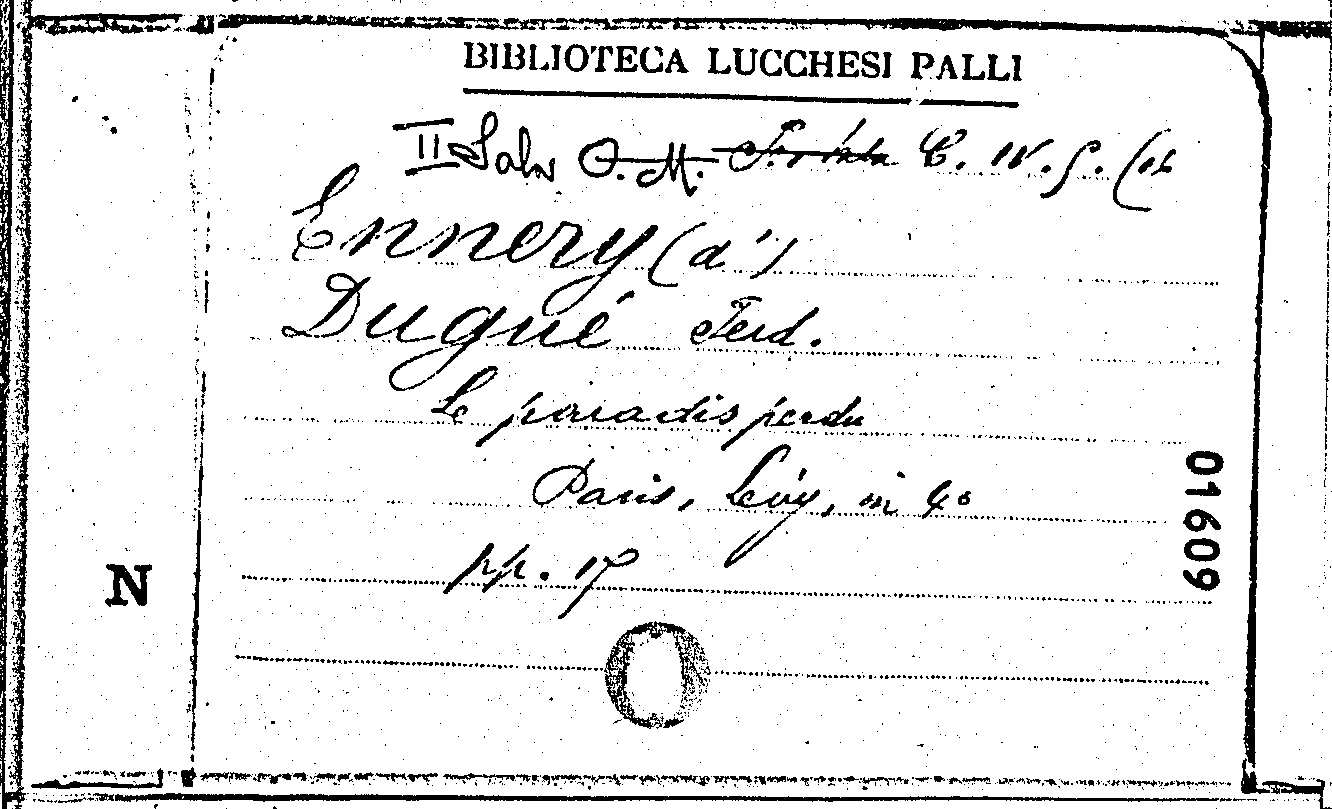 BIBLIOTECA LUCCHESI PALLI
II Sala O. M. C. IV. 9. (16
Ennery (d')
Dugué Ferd.
Le paradis perdu
Paris, Lévy, in 4o
pp. 17
01609
N